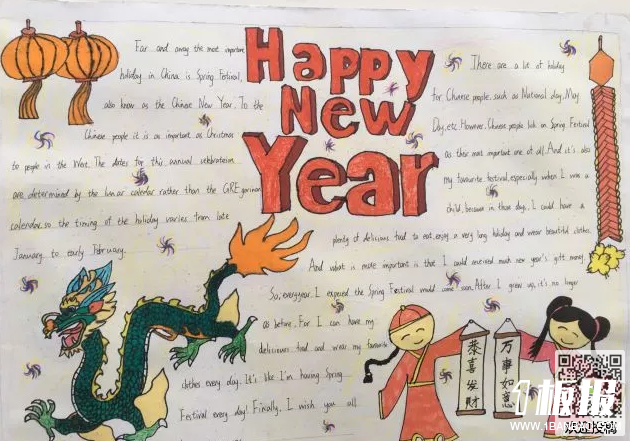 Happy
New
Year
Far and away the most important
holiday in China is Spring Festival,
also know as the Chinese New Year. To the
Chinese people it is as important as Christmas
to people in the West. The dates for this annual celebration
are determined by the lunar calendar rather than the GREgorian
calendar, so the timing of the holiday varies from late
January to early February.
There are a lot of holiday
for Chinese people, such as National day, May
Day, etc. However, Chinese people look on Spring Festival
as their most important one of all. And it's also
my favourite festival, especially when I was a
child, because in those day, I could have a
plenty of delicious food to eat, enjoy a very long holiday and wear beautiful clothes.
And what is more important is that I could received much new year's gift money.
So, everyyear, I expected the Spring Festival would come soon. After I grew up, it's no longer
as before. For I can have my
delicious food and wear my favourite
clothes every day. It's like I'm having Spring
Festival every day! Finally, I wish you all
恭喜发財
万事如意
1板报
WWW.1BANBAO.COM
欢迎投稿